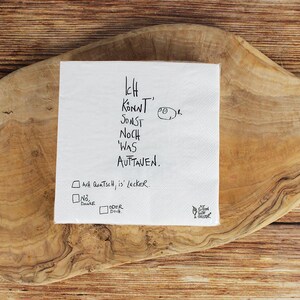 ICH
KÖNNT'
SONST
NOCH
'WAS
AUFTAUEN.
ACH QUATSCH, IS' LECKER
NÖ,
DANKE
ODER
DOCH